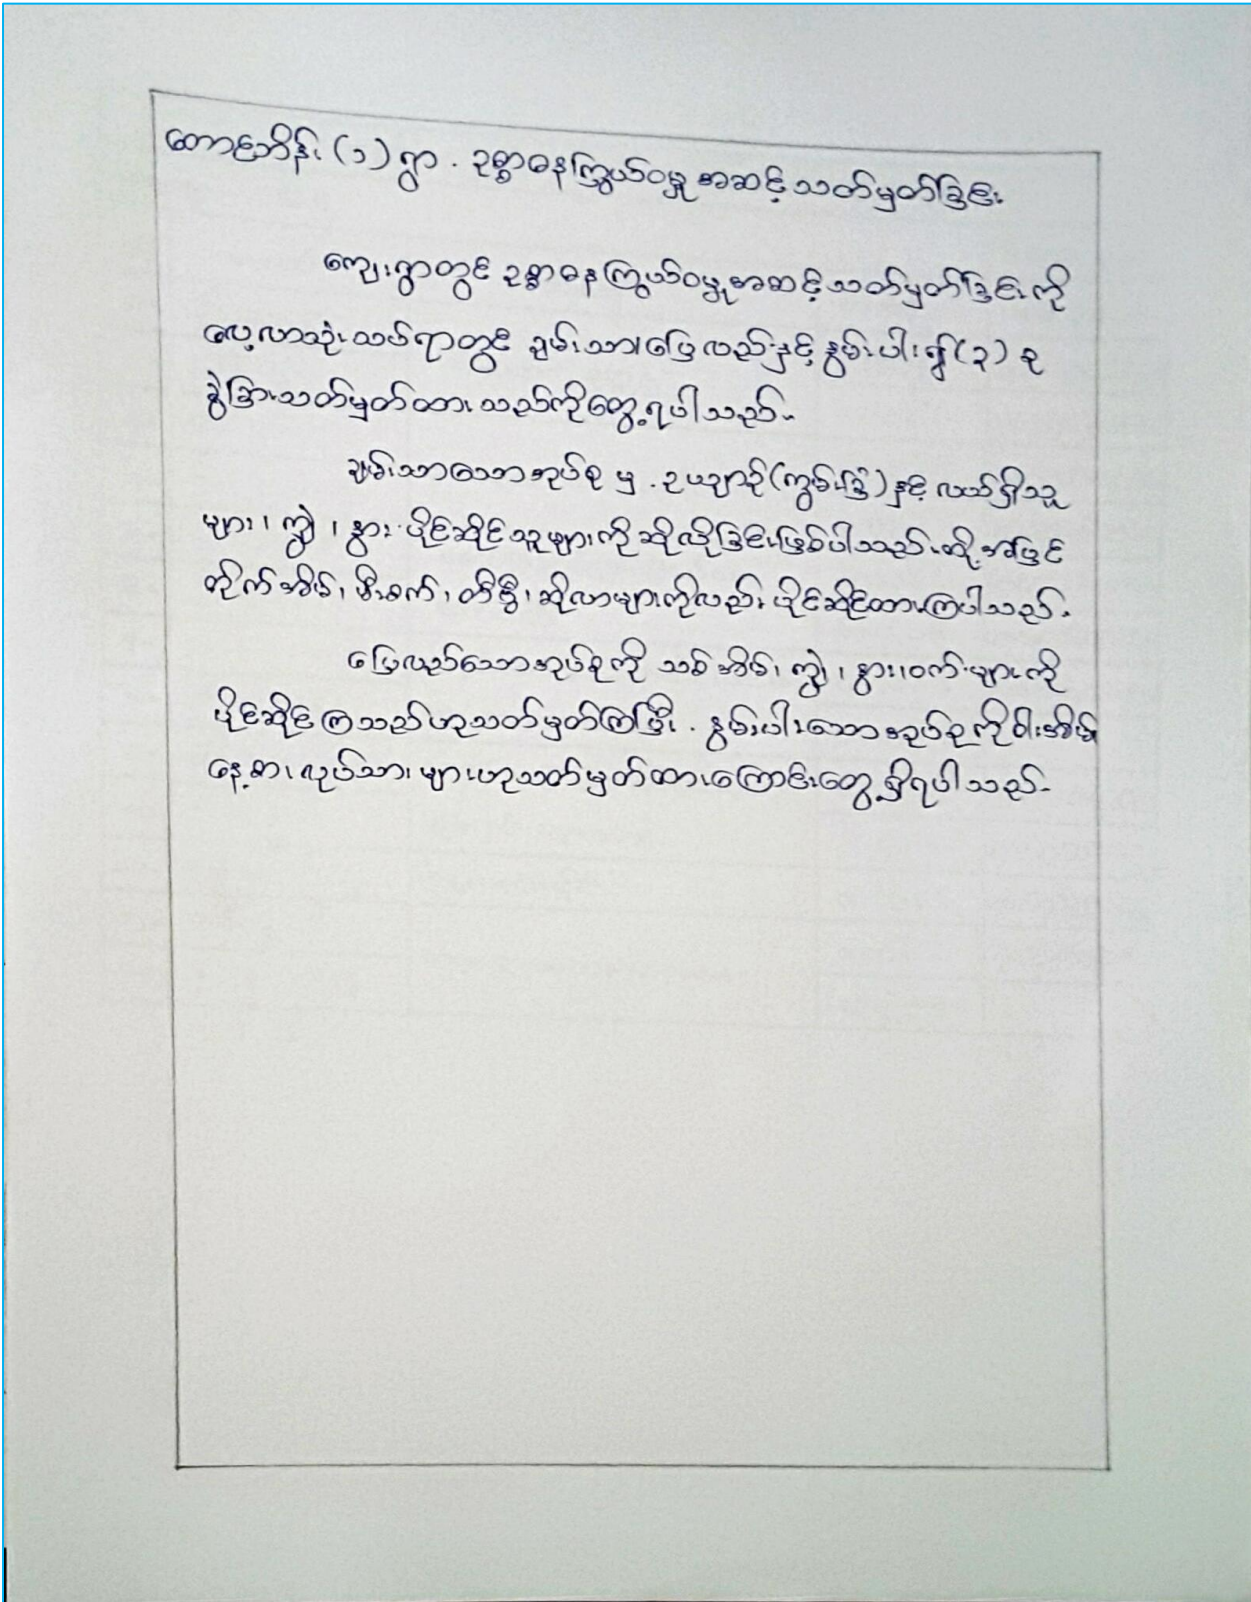 တောင်ဘိန်း (၁) ရွာ . ဥစ္စာဓနကြွယ်ဝမှု အဆင့် သတ်မှတ်ခြင်း
ကျေးရွာတွင် ဥစ္စာဓနကြွယ်ဝမှုအဆင့်သတ်မှတ်ခြင်းကို
လေ့လာသုံးသပ်ရာတွင် ချမ်းသာ၊ ပြေလည်နှင့် နွမ်းပါး ၍ (၃) ခု
ခွဲခြားသတ်မှတ်ထားသည်ကိုတွေ့ရပါသည်။
ချမ်းသာသောအုပ်စု မှ . ဥယျာဉ်(ကွမ်းခြံ)နှင့် လယ်ရှိသူ
များ၊ ကျွဲ ၊ နွား ပိုင်ဆိုင်သူများကို ဆိုလိုခြင်းဖြစ်ပါသည်။ ထို့အပြင်
တိုက်အိမ်၊ မီးစက်၊ တီဗွီ၊ ဆိုလာများကိုလည်း ပိုင်ဆိုင်ထားကြပါသည်။
ပြေလည်သောအုပ်စုကို သစ်အိမ်၊ ကျွဲ ၊ နွား၊ ဝက်များကို
ပိုင်ဆိုင်ကြသည်ဟုသတ်မှတ်ကြပြီး . နွမ်းပါးသောအုပ်စုကိုဝါးအိမ်
နေ့စားလုပ်သားများဟုသတ်မှတ်ထားကြောင်းတွေ့ရှိရပါသည်။